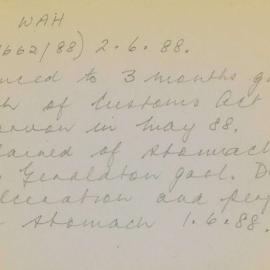 WAH
1662/88) 2.6.88.
nced to 3 months ga
h of Customs Act
arvon in May 88.
lained of stomach
Geraldton gaol. D
lceration and perf
stomach 1.6.88.